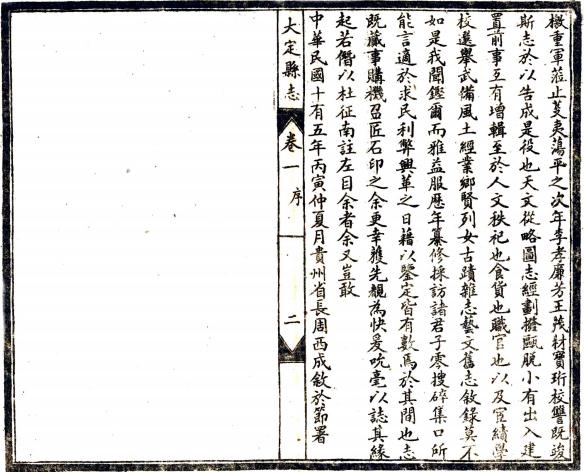 檄重軍蒞止芟夷蕩平之次年李孝廉芳王茂材寶珩校讐既竣
斯志於以告成是役也天文從略圖志經劃撥甌脫小有出入建
置前事互有增輯至於人文秩祀也食貨也職官也以及宦績學
校選舉武備風土經業鄉賢列女古蹟雜志藝文舊志敘錄莫不
如是我聞鏗爾而雅益服歷年纂修採訪諸君子零搜碎集口所
能言適於求民利弊興革之日藉以鑒定皆有數焉於其間也志
既蕆事購機召匠石印之余更幸獲先覩為快爰吮毫以誌其緣
起若僭以杜征南註左目余者余又豈敢
中華民國十有五年丙寅仲夏月貴州省長周西成敘於節署
大定縣志
卷一
序
二